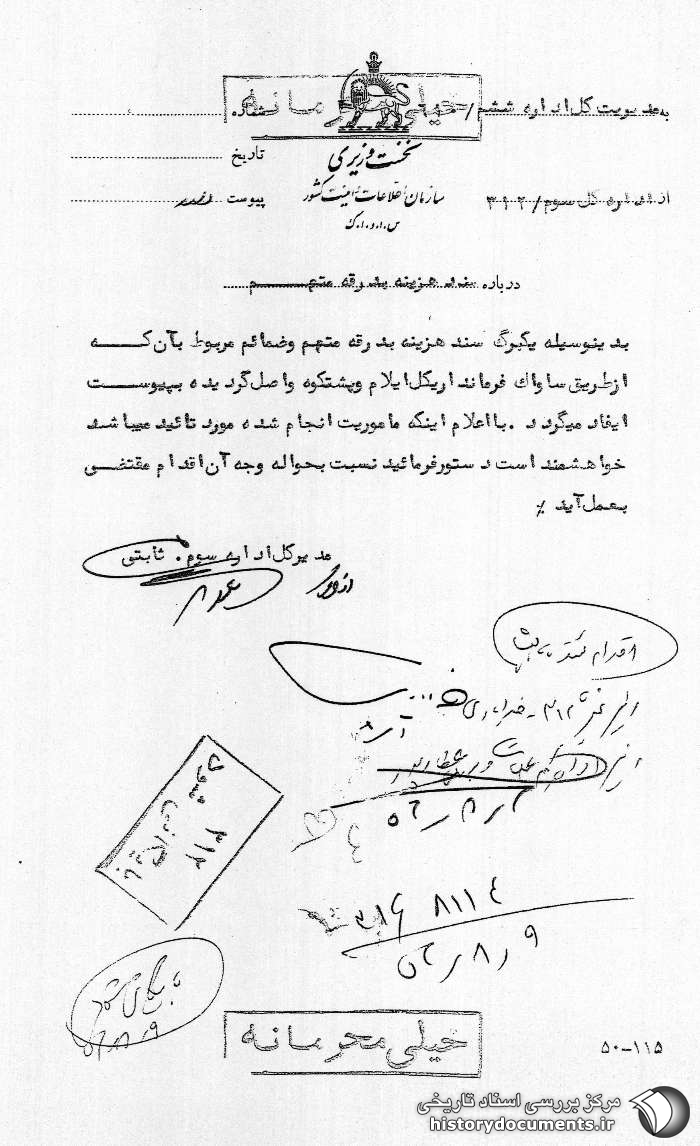 خیلی محرمانه
به مدیریت کل اداره ششم/
شماره
نخست وزیری
تاریخ
سازمان اطلاعات و امنیت کشور
از اداره کل سوم/ ۳۱۲
پیوست دارد
س.ا.و.ا.ک
درباره سند هزینه بدرقه متهم
بدینوسیله یکبرگ سند هزینه بدرقه متهم وضمائم مربوط بآن که
ازطریق ساواك فرمانداریکل ایلام وپشتکوه واصل گردیده بپیوست
ایفاد میگردد .بااعلام اینکه ماموریت انجام شده مورد تائید میباشد
خواهشمند است دستورفرمائید نسبت بحواله وجه آن اقدام مقتضی
بعمل آید ٪
مدیرکل اداره سوم. ثابتی
اقدام شد
۳۱۲
بایگانی شود
۳۱۶ ۸۱۱۴
۹ر۸ر۵۲
بایگانی شود
خیلی محرمانه
۵۰-۱۱۵
مرکز بررسی اسناد تاریخی
historydocuments.ir